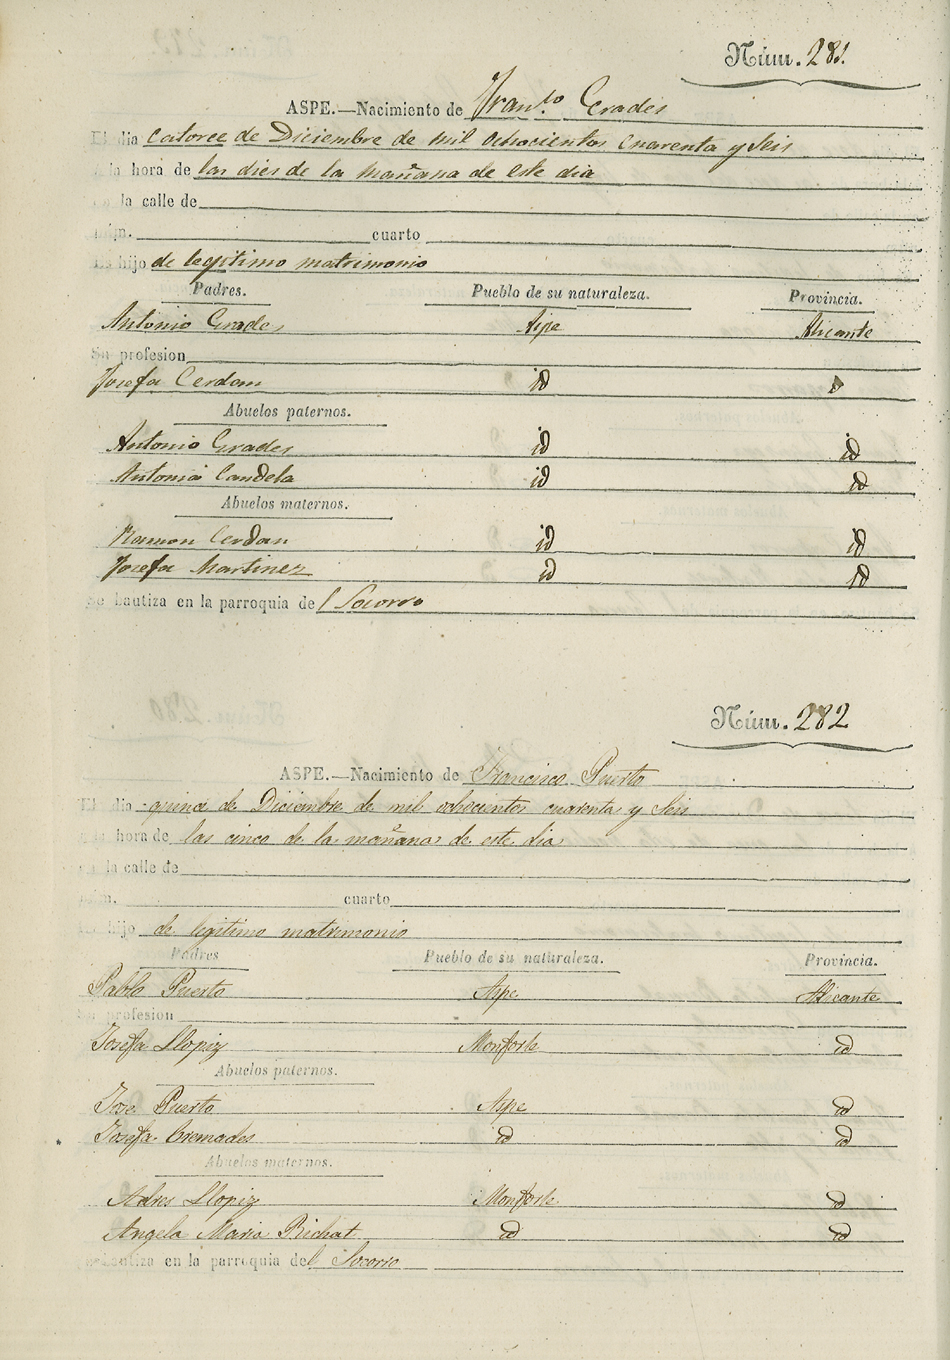 Núm. 281.
ASPE.—Nacimiento de Fran.co Grades
El dia catorce de Diciembre de mil ochocientos cuarenta y seis
a la hora de las dies de la mañana de este dia
en la calle de
núm. cuarto
Es hijo de legitimo matrimonio
Padres. Pueblo de su naturaleza. Provincia.
Antonio Grades Aspe Alicante
Su profesion
Josefa Cerdan id
Abuelos paternos.
Antonio Grades id id
Antonia Candela id id
Abuelos maternos.
Ramon Cerdan id id
Josefa Martinez id id
se bautiza en la parroquia del Socorro
Núm. 282
ASPE.—Nacimiento de Francisco Puerto
El dia de Diciembre de mil ochocientos cuarenta y seis
a la hora de las cinco de la mañana de este dia
en la calle de
núm. cuarto
Es hijo de legitimo matrimonio
Padres Pueblo de su naturaleza. Provincia.
Pablo Puerto Aspe Alicante
Su profesion
Josefa Llopiz Monforte id
Abuelos paternos.
Jose Puerto Aspe id
Josefa Cremades id id
Abuelos maternos.
Adres Llopiz Monforte id
Angela Maria Richat id id
se bautiza en la parroquia del Socorro